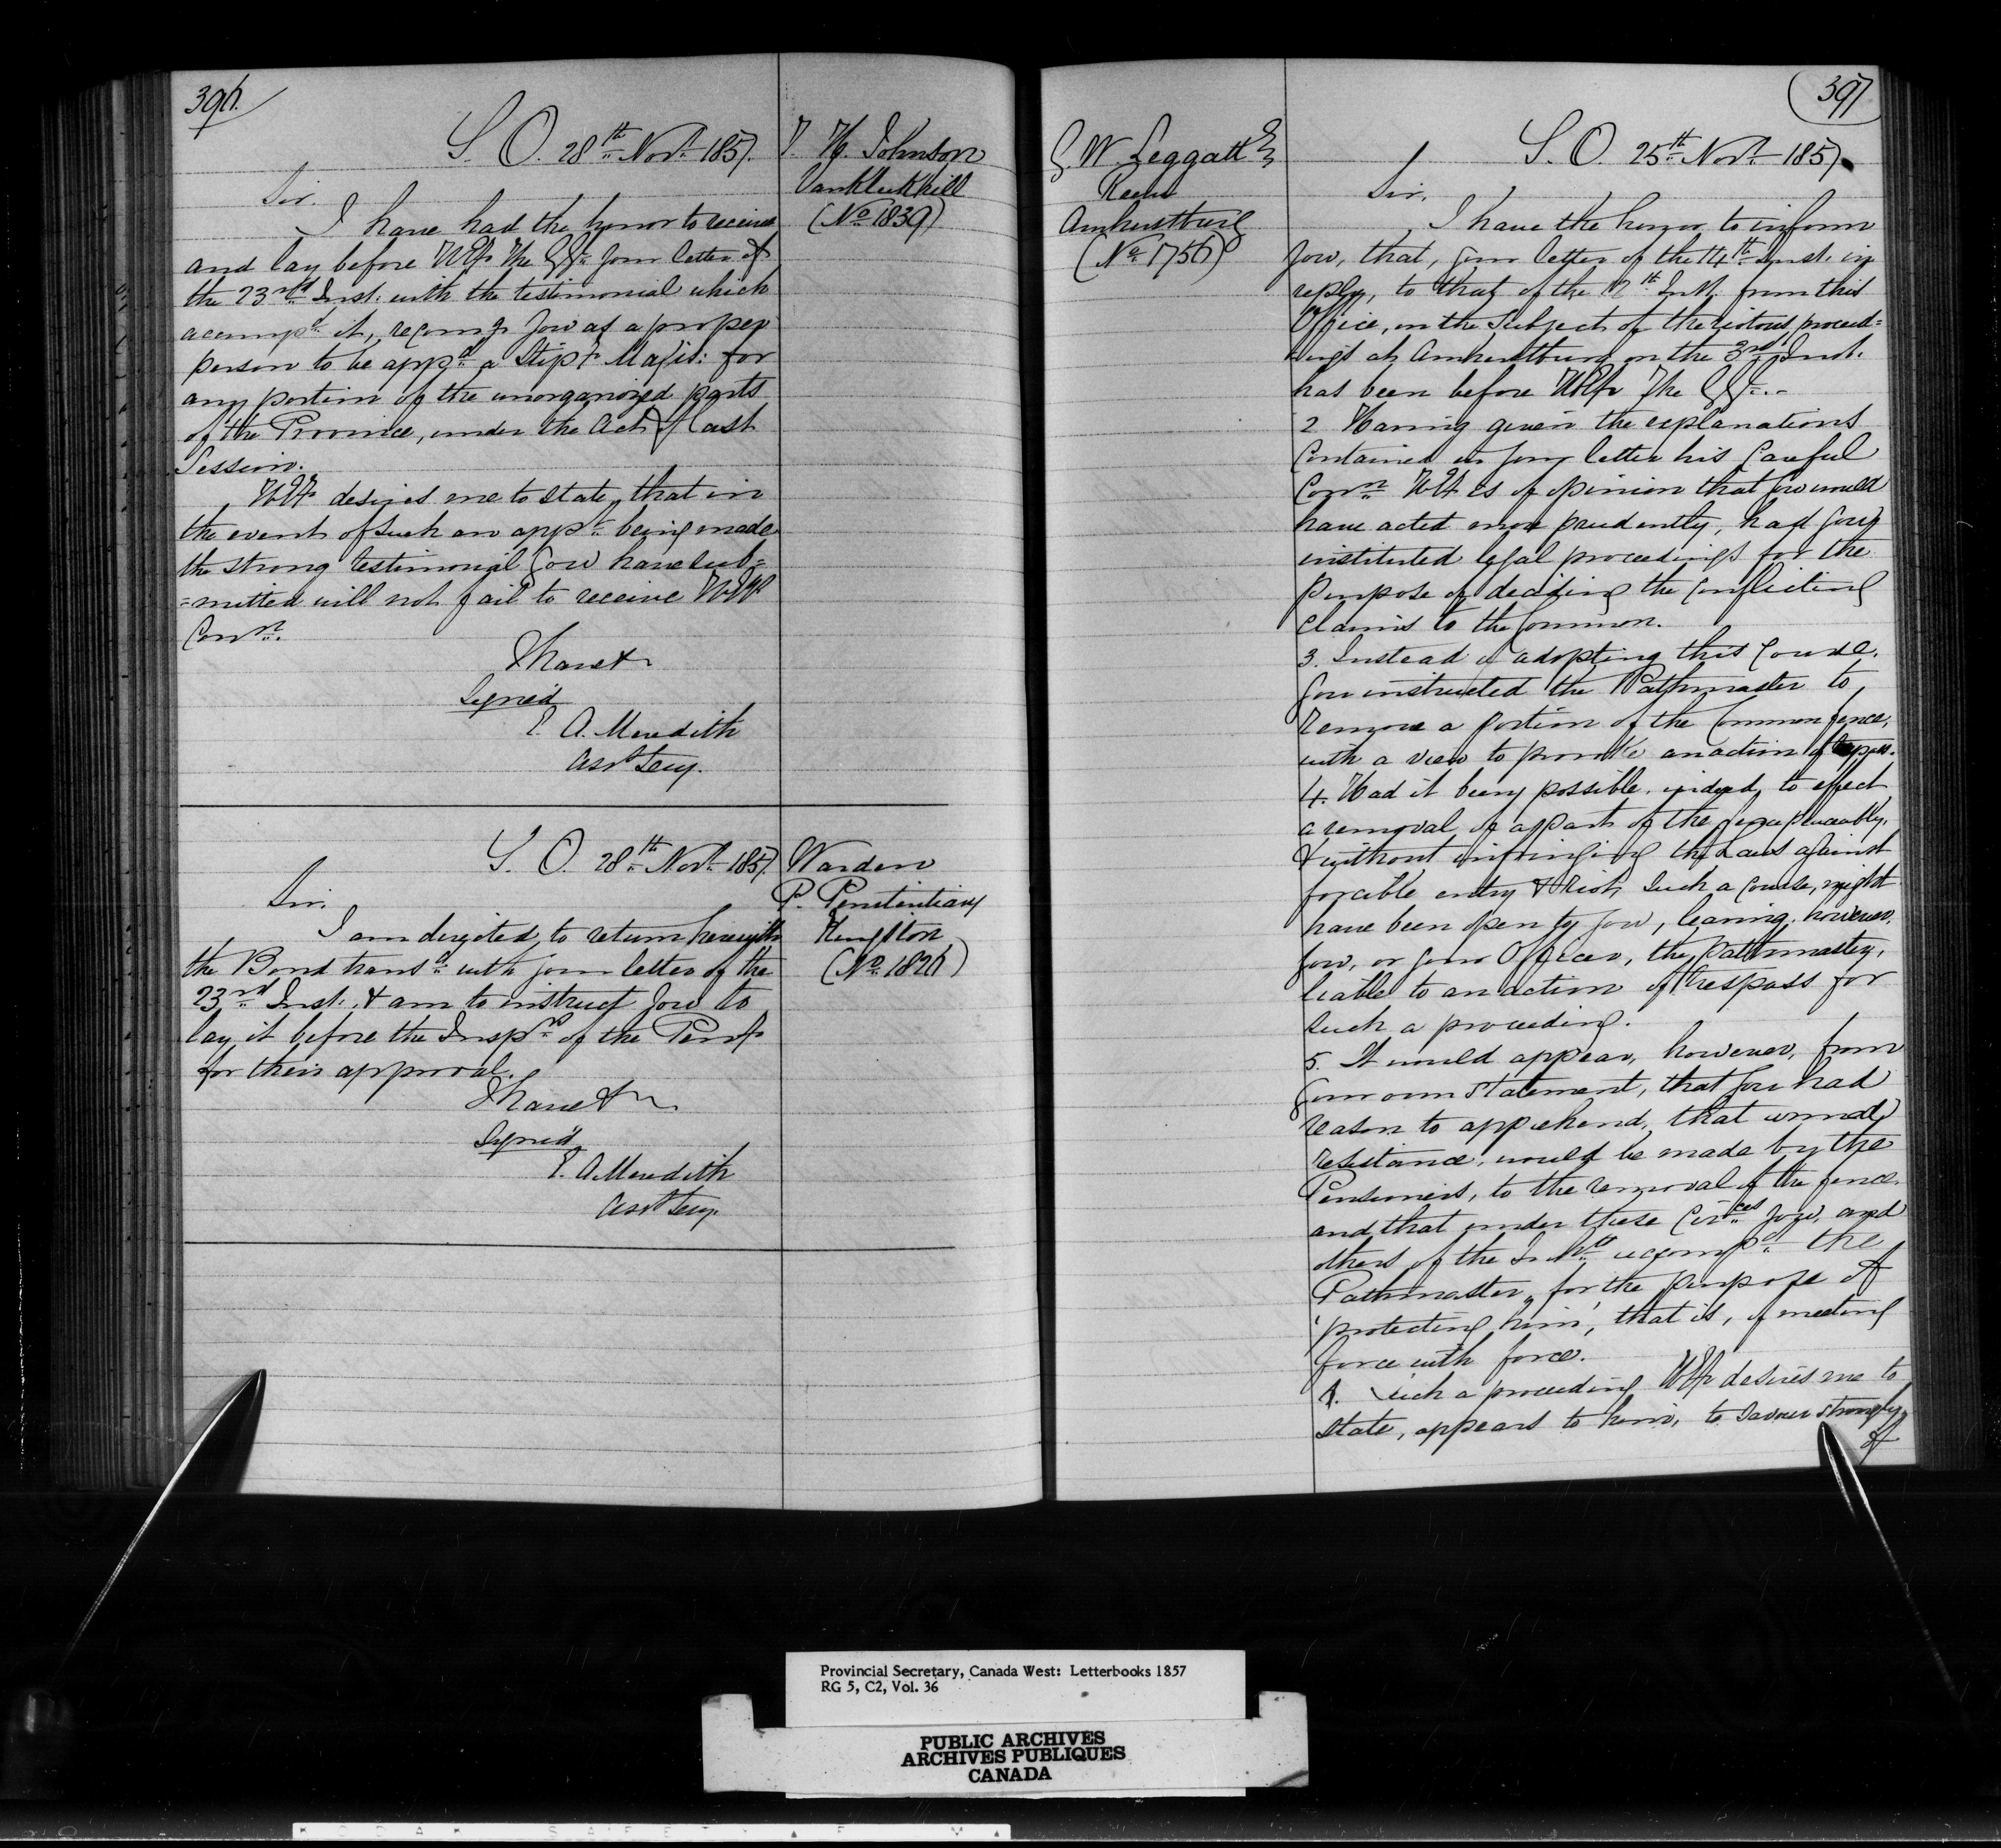 396.
S. O. 28th Novr 1857.
T. H. Johnson
Vankleekhill
(No 1839)
Sir.
I have had the honor to receive
and lay before HE The GG. your letter of
the 23rd Inst. with the testimonial which
accompd it, recomg you as a proper
person to be appd a Stipy Magis: for
any portion of the unorganized parts
of the Province, under the Act of last
Session.
HE desires me to state, that in
the event of such an appt being made
the strong testimonial you have sub=
=mitted will not fail to receive HE's
Conn.
I have &
Signed
E. A. Meredith
Asst Secy.
S. O. 28th Novr 1857.
Warden
P. Penitentiary
Kingston
(No 1826)
Sir.
I am directed, to return herewith
the Bond transd with your letter of the
23rd Inst. & am to instruct you to
lay it before the Insprs of the Peny
for their approval.
I have &
Signed
E. A. Meredith
Asst Secy.
397
G. W. Leggatt Eq
Reeve
Amherstburg
(No 1756)
S. O. 25th Novr 1857.
Sir,
I have the honor to inform
you, that, your letter of the 14th Inst. in
reply, to that of the 12th Inst. from this
Office, on the Subject of the riotous proceed=
=ings at Amherstburg on the 3rd Inst.
has been before HE The GG.
2 Having given the explanations
Contained in your letter his Careful
Conn HE is of opinion that you would
have acted more prudently, had you
instituted legal proceedings for the
purpose of deciding the Conflicting
Claims to the Common.
3. Instead of adopting this Course.
you instructed the Pathmaster to
remove a portion of the Common fence,
with a view to provoke an action of trespass.
4. Had it been possible, indeed, to effect
a removal of a part of the fence peaceably,
& without infringing the Laws against
forcible entry & Riot, Such a Course, might
have been open to you, leaving, however,
you, or your Officer, the Pathmaster,
liable to an action of trespass for
such a proceeding.
5. It would appear, however, from
your own statement, that you had
reason to apprehend, that armed
resistance, would be made by the
Pensioners, to the removal of the fence.
and that under these CirCes you, and
others of the Inhts accompd the
Pathmaster, for the purpose of
'protecting him', that is, of meeting
force with force.
6. Such a proceeding HE desires me to
state, appears to him, to savour strongly
of
Provincial Secretary, Canada West: Letterbooks 1857
RG 5, C2, Vol. 36
PUBLIC ARCHIVES
ARCHIVES PUBLIQUES
CANADA
KODAK SAFETY